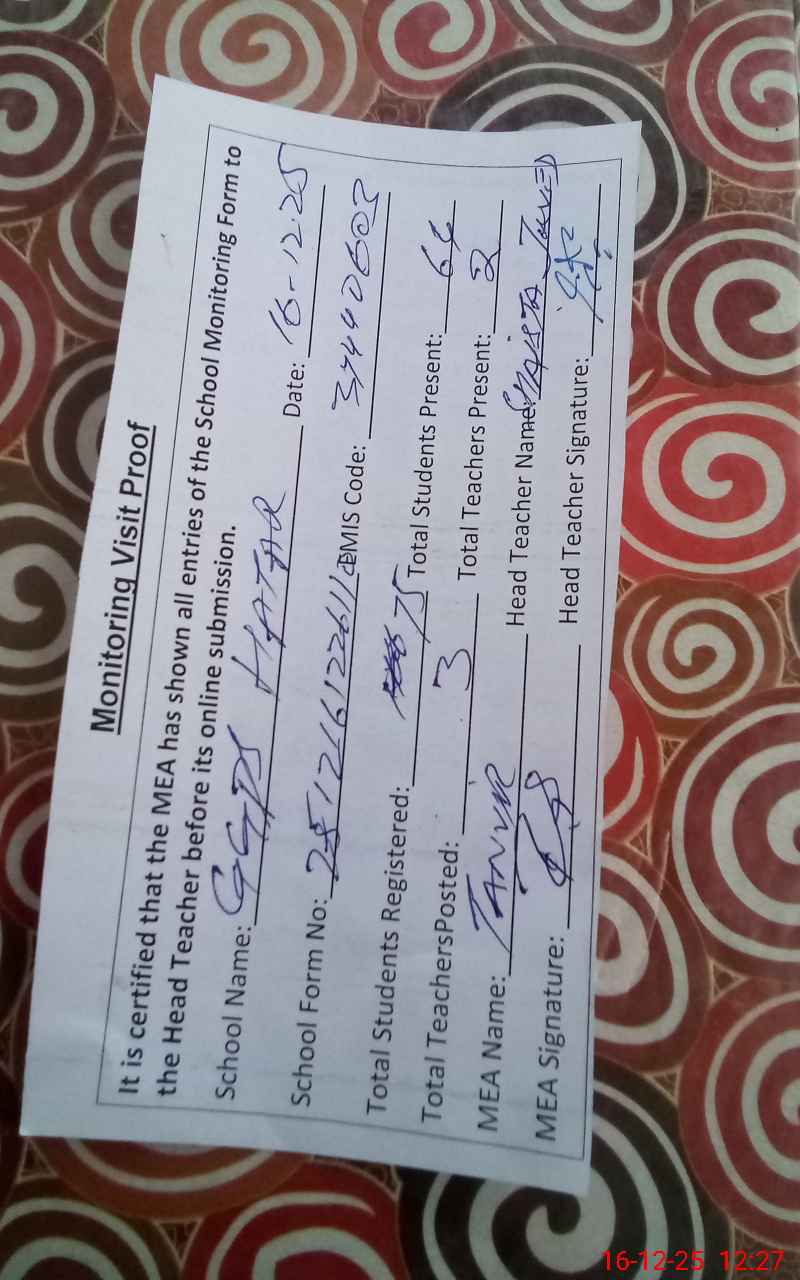 Monitoring Visit Proof
It is certified that the MEA has shown all entries of the School Monitoring Form to
the Head Teacher before its online submission.
School Name: GGPS HATAR Date: 16-12-25
School Form No: EMIS Code: 37440603
Total Students Registered: 75 Total Students Present: 64
Total TeachersPosted: 3 Total Teachers Present: 2
MEA Name: TANVIR Head Teacher Name: SHAISTA JAVED
MEA Signature: Head Teacher Signature:
16-12-25 12:27